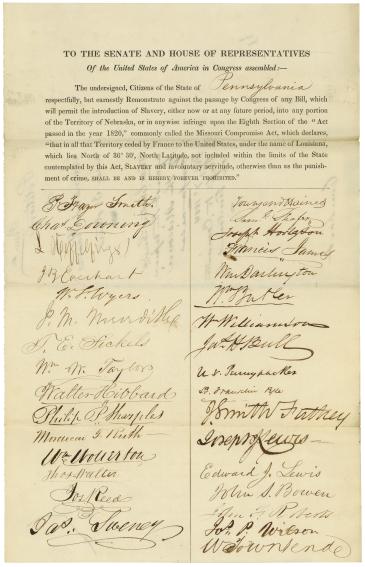 TO THE SENATE AND HOUSE OF REPRESENTATIVES
Of the United States of America in Congress assembled:—
The undersigned, Citizens of the State of Pennsylvania
respectfully, but earnestly Remonstrate against the passage by Congress of any Bill, which
will permit the introduction of Slavery, either now or at any future period, into any portion
of the Territory of Nebraska, or in anywise infringe upon the Eighth Section of the "Act
passed in the year 1820," commonly called the Missouri Compromise Act, which declares,
"that in all that Territory ceded by France to the United States, under the name of Louisiana,
which lies North of 36° 30', North Latitude, not included within the limits of the State
contemplated by this Act, SLAVERY and involuntary servitude, otherwise than as the punish-
ment of crime, SHALL BE AND IS HEREBY FOREVER PROHIBITED."
P. Frazer Smith
Chas Downing
J B Everhart
W. P. Wyers
J. M.
T. E. Sickels
Wm W. Taylor
Walter Hibbard
Philip P. Sharples
Wm Wollerton
Thos Walter
Jos Reed
Jas. Sweney
Townsend Haines
Joseph Hodgson
Francis James
Wm Darlington
Wm Butler
W Williamson
Jas H Bull
U. V. Pennypacker
B. Franklin
J. Smith Futhey
Joseph J. Lewis
Edward J. Lewis
John S. Bowen
Roberts
Jos. P. Wilson
W Townsend